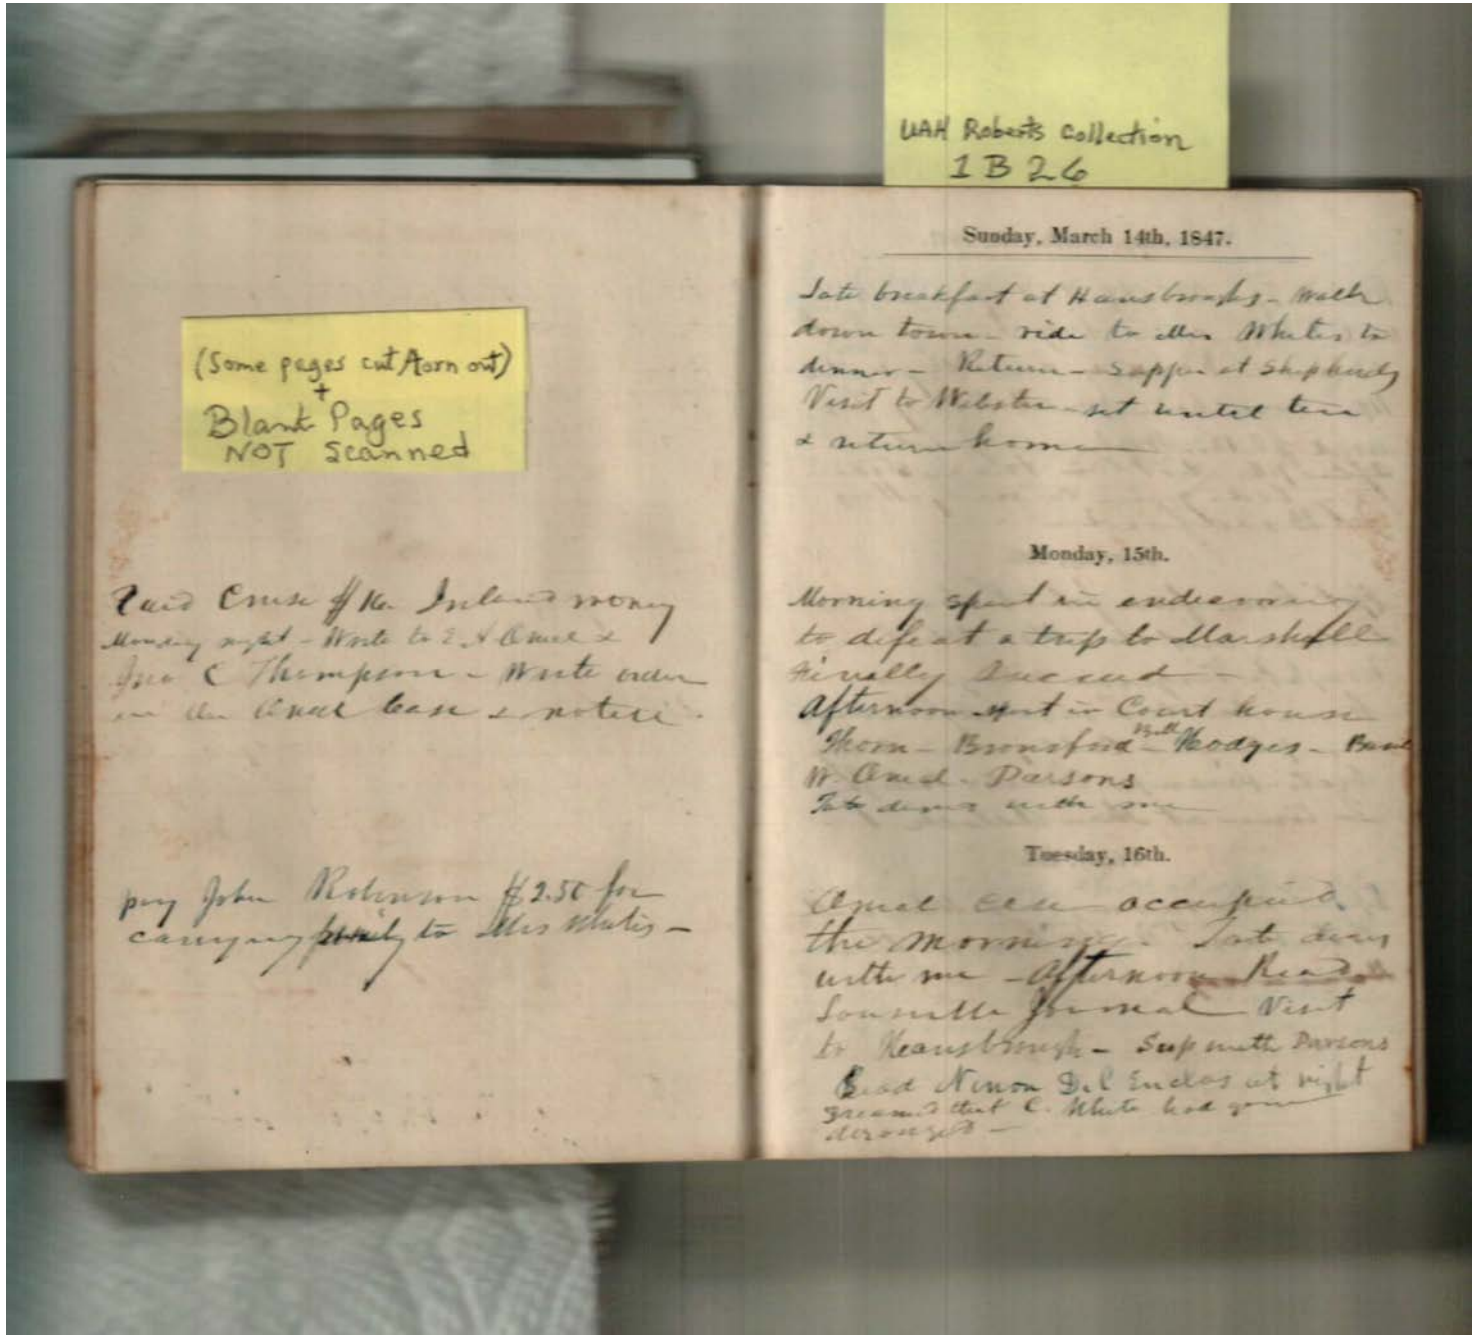 UAH Roberts Collection
1B26
(Some pages cut/torn out)
+
Blank Pages
NOT Scanned
Paid Cruse $ Ireland money
Monday night - Write to E A &
Jno C Thompson - Write order
in the case & notice.
pay John Robinson $2.50 for
carrying family to Mrs Whites -
Sunday, March 14th, 1847.
Late breakfast at Hansbroughs - walk
down town - ride to Mrs Whites to
dinner - Return - Supper at Shepherds
Visit to Webster - set until ten
& return home
Monday, 15th.
Morning spent in endeavoring
to defeat a trip to Marshall
Finally succeed -
Afternoon spent in Court house
Thorn - - Bell Hodges -
W. - Parsons
Tate dines with me
Tuesday, 16th.
case occupied
the morning. Tate dines
with me - Afternoon Read
Louisville Journal Visit
to Hansbrough - Sup with Parsons
Read Ninon De L Enclos at night
Dreamed that C. White had gone
deranged -